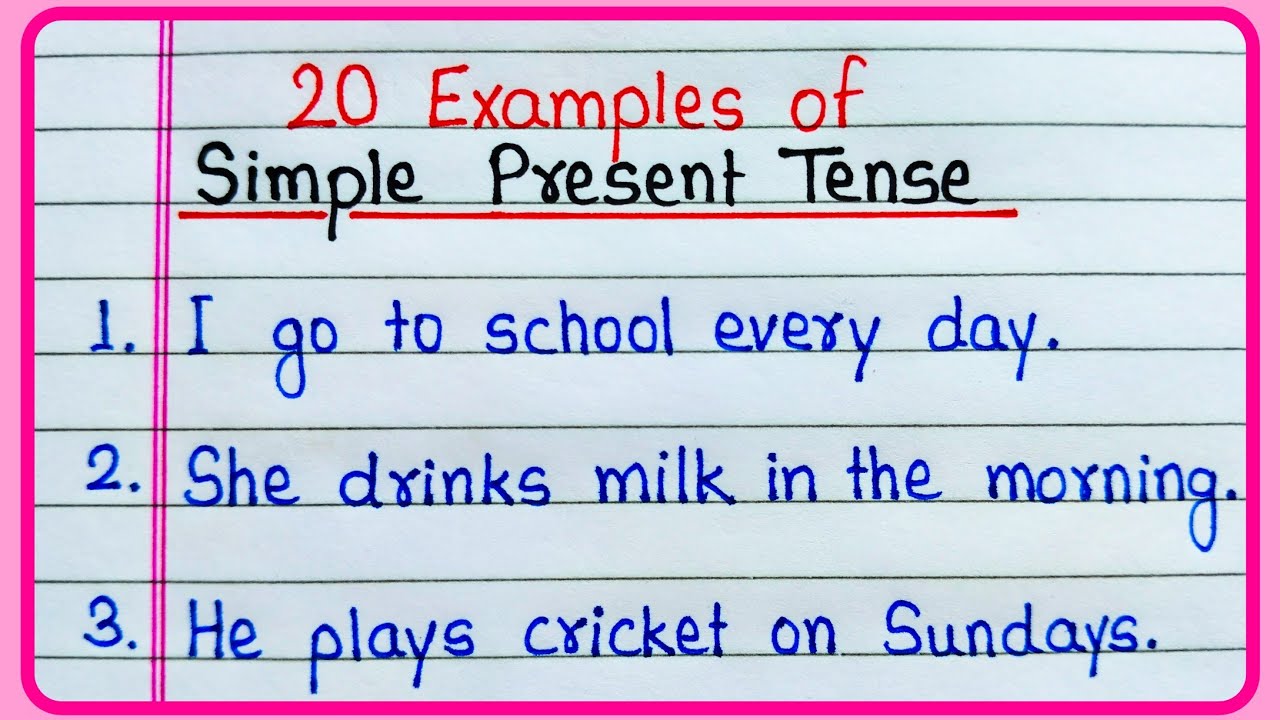 20 Examples of
Simple Present Tense
1. I go to school every day.
2. She drinks milk in the morning.
3. He plays cricket on Sundays.